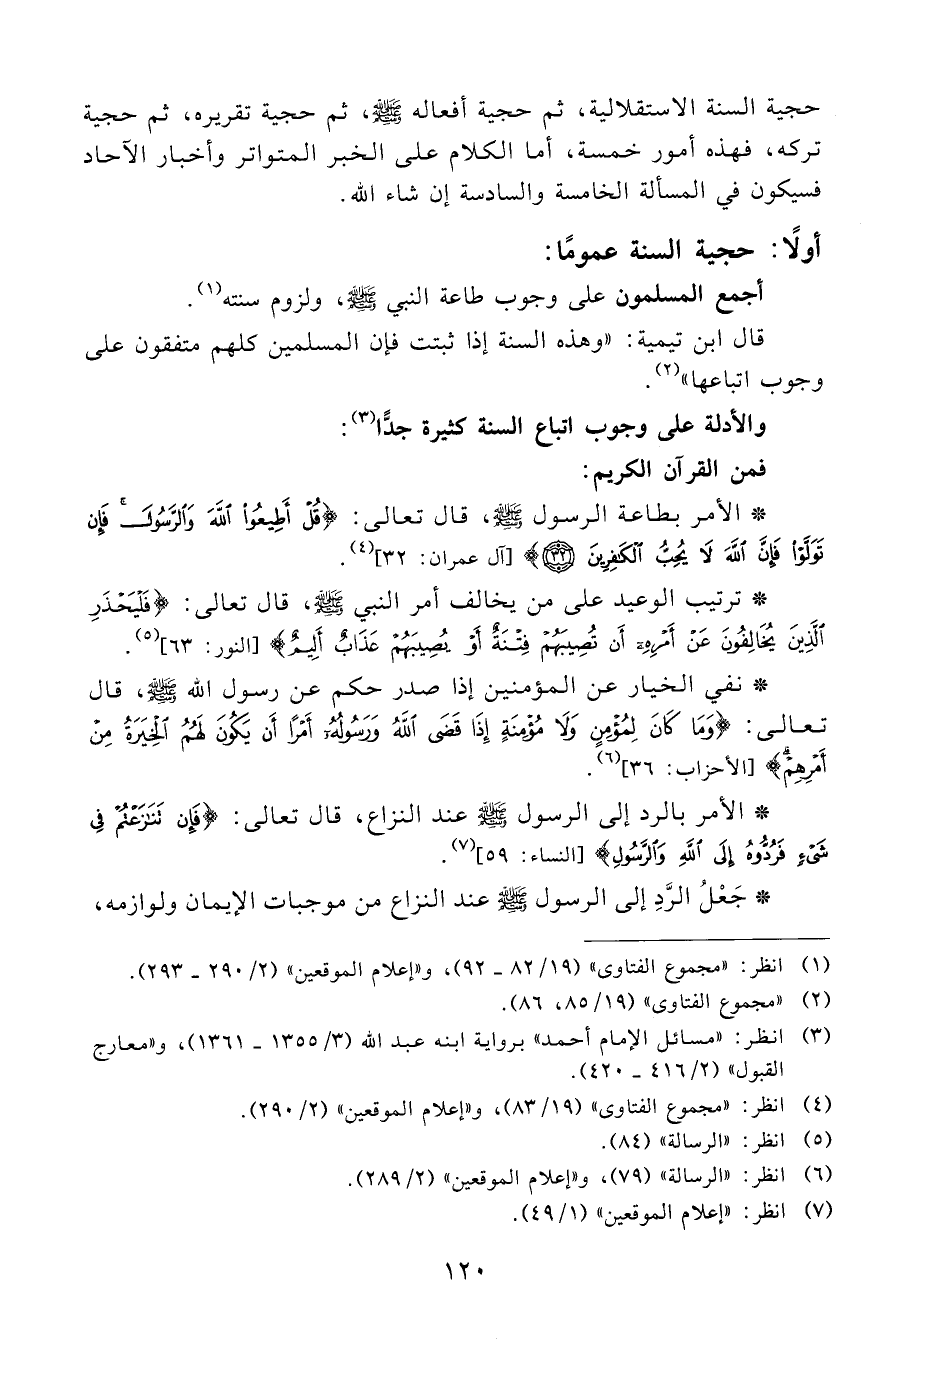 حجية السنة الاستقلالية، ثم حجية أفعاله ﷺ، ثم حجية تقريره، ثم حجية
تركه، فهذه أمور خمسة، أما الكلام على الخبر المتواتر وأخبار الآحاد
فسيكون في المسألة الخامسة والسادسة إن شاء الله.
أولًا: حجية السنة عمومًا:
أجمع المسلمون على وجوب طاعة النبي ﷺ، ولزوم سنته(١).
قال ابن تيمية: «وهذه السنة إذا ثبتت فإن المسلمين كلهم متفقون على
وجوب اتباعها»(٢).
والأدلة على وجوب اتباع السنة كثيرة جدًّا(٣):
فمن القرآن الكريم:
* الأمر بطاعة الرسول ﷺ، قال تعالى: ﴿قُلْ أَطِيعُوا۟ ٱللَّهَ وَٱلرَّسُولَ ۖ فَإِن
تَوَلَّوْا۟ فَإِنَّ ٱللَّهَ لَا يُحِبُّ ٱلْكَٰفِرِينَ ۝٣٢﴾ [آل عمران: ٣٢](٤).
* ترتيب الوعيد على من يخالف أمر النبي ﷺ، قال تعالى: ﴿فَلْيَحْذَرِ
ٱلَّذِينَ يُخَالِفُونَ عَنْ أَمْرِهِۦٓ أَن تُصِيبَهُمْ فِتْنَةٌ أَوْ يُصِيبَهُمْ عَذَابٌ أَلِيمٌ﴾ [النور: ٦٣](٥).
* نفي الخيار عن المؤمنين إذا صدر حكم عن رسول الله ﷺ، قال
تعالى: ﴿وَمَا كَانَ لِمُؤْمِنٍ وَلَا مُؤْمِنَةٍ إِذَا قَضَى ٱللَّهُ وَرَسُولُهُۥٓ أَمْرًا أَن يَكُونَ لَهُمُ ٱلْخِيَرَةُ مِنْ
أَمْرِهِمْ ۗ﴾ [الأحزاب: ٣٦](٦).
* الأمر بالرد إلى الرسول ﷺ عند النزاع، قال تعالى: ﴿فَإِن تَنَٰزَعْتُمْ فِى
شَىْءٍ فَرُدُّوهُ إِلَى ٱللَّهِ وَٱلرَّسُولِ﴾ [النساء: ٥٩](٧).
* جَعْلُ الرَّدِ إلى الرسول ﷺ عند النزاع من موجبات الإيمان ولوازمه،
(١) انظر: «مجموع الفتاوى» (١٩/ ٨٢ ـ ٩٢)، و«إعلام الموقعين» (٢/ ٢٩٠ ـ ٢٩٣).
(٢) «مجموع الفتاوى» (١٩/ ٨٥، ٨٦).
(٣) انظر: «مسائل الإمام أحمد» برواية ابنه عبد الله (٣/ ١٣٥٥ ـ ١٣٦١)، و«معارج
القبول» (٢/ ٤١٦ ـ ٤٢٠).
(٤) انظر: «مجموع الفتاوى» (١٩/ ٨٣)، و«إعلام الموقعين» (٢/ ٢٩٠).
(٥) انظر: «الرسالة» (٨٤).
(٦) انظر: «الرسالة» (٧٩)، و«إعلام الموقعين» (٢/ ٢٨٩).
(٧) انظر: «إعلام الموقعين» (١/ ٤٩).
١٢٠